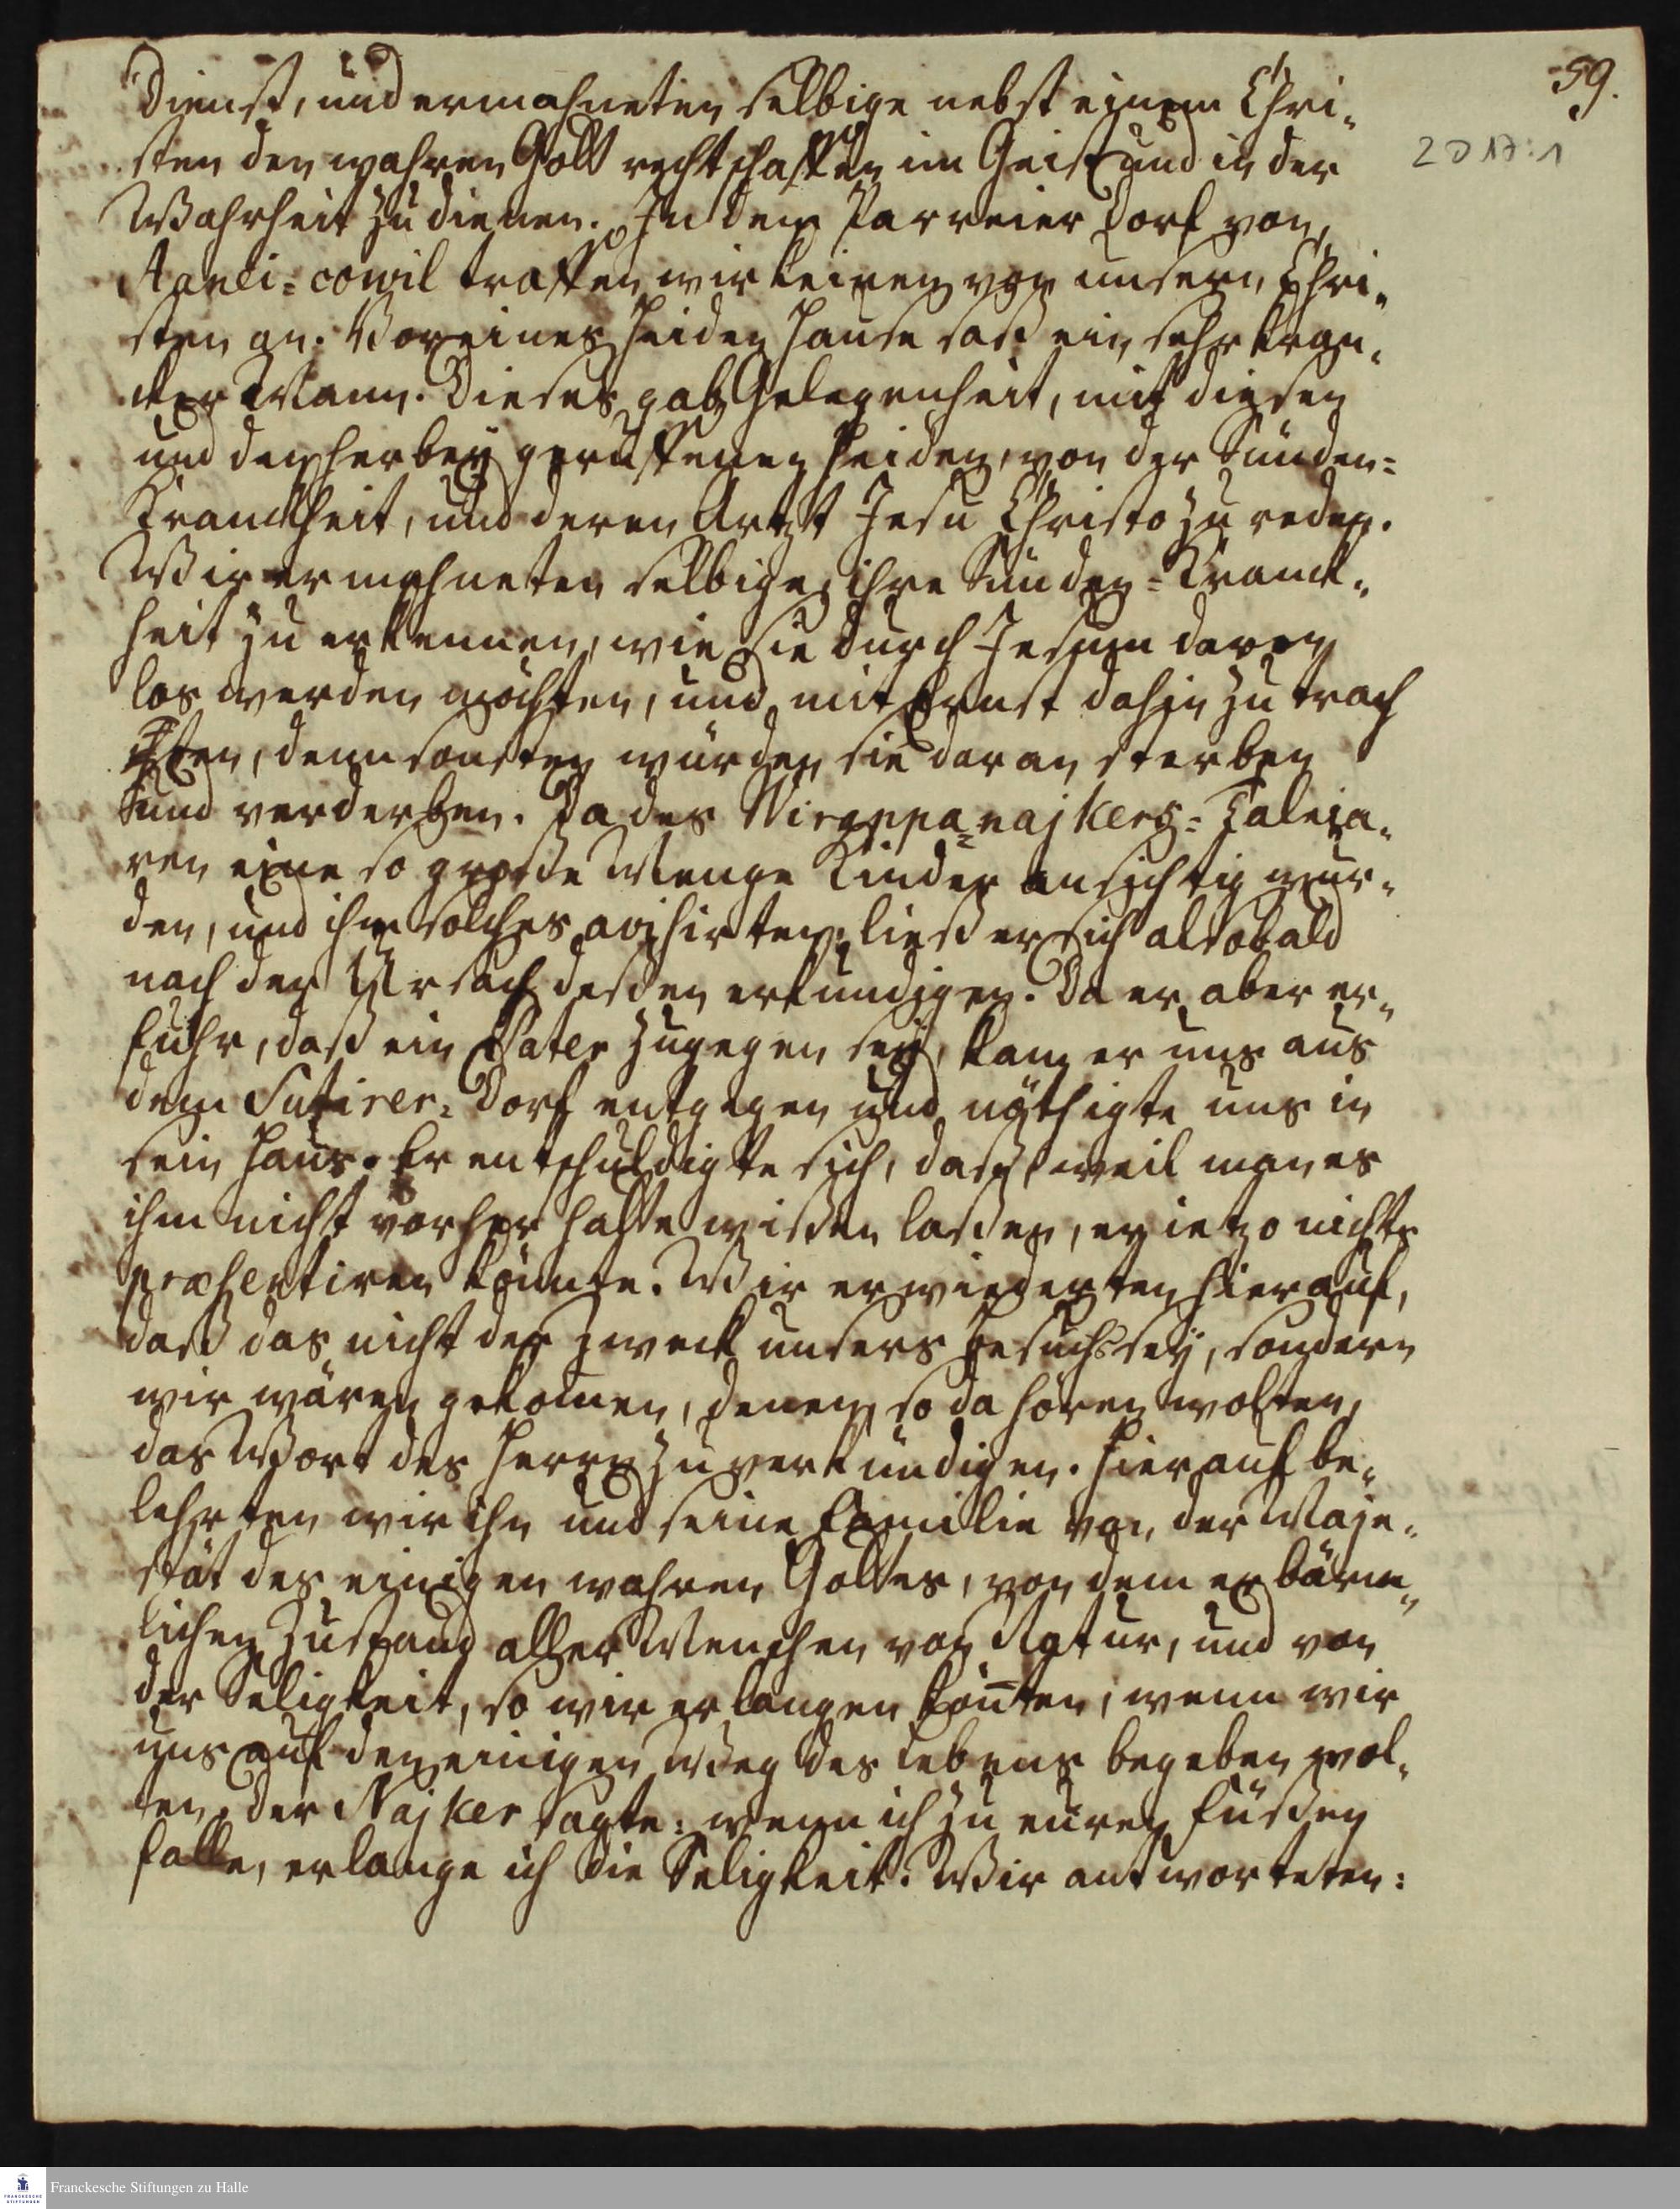 59.
2 D 17:1
Dienst, und ermahneten selbige nebst einem Chri-
sten den wahren Gott rechtschaffen im Geist und in der
Wahrheit zu dienen. In dem Parreier Dorf von
Aanei-cowil traffen wir keinen von unsern Chri-
sten an. Vor eines Heiden Hause saß ein sehr kran-
cker Mann. Dieses gab Gelegenheit, mit diesen
und den herbey geruffenen Heiden, von der Sünden-
Kranckheit, und deren Artzt Jesu Christo zu reden.
Wir ermahneten selbige, ihre Sünden-Kranck-
heit zu erkennen, wie sie durch Jesum davon
los werden möchten, und mit Ernst dahin zu trach
ten, denn sonsten würden sie daran sterben
und verderben. Da des Wirappa-najkers-Taleia-
ren eine so grosse Menge Kinder ansichtig wur-
den, und ihm solches avisirten, ließ er sich alsobald
nach der Ursach dessen erkundigen. Da er aber er-
fuhr, daß ein Pater zugegen sey, kam er uns aus
dem Sutirer-Dorf entgegen und nöthigte uns in
sein Haus. Er entschuldigte sich, daß, weil man es
ihm nicht vorher hätte wissen lassen, er ietzo nichts
præsentiren könnte. Wir erwiederten hierauf,
daß das nicht der Zweck unsers Besuchs sey, sondern
wir wären gekomen, denen, so da hören wolten,
das Wort des Herrn zu verkündigen. Hierauf be-
lehrten wir ihn und seine Familie von der Maje-
stät des einigen wahren Gottes, von dem erbärm-
lichen Zustand aller Menschen von Natur, und von
der Seligkeit, so wir erlangen könten, wenn wir
uns auf den einigen Weg des Lebens begeben wol-
ten. Der Najker sagte: wenn ich zu euren Füssen
falle, erlange ich die Seligkeit. Wir antworteten:
Franckesche Stiftungen zu Halle